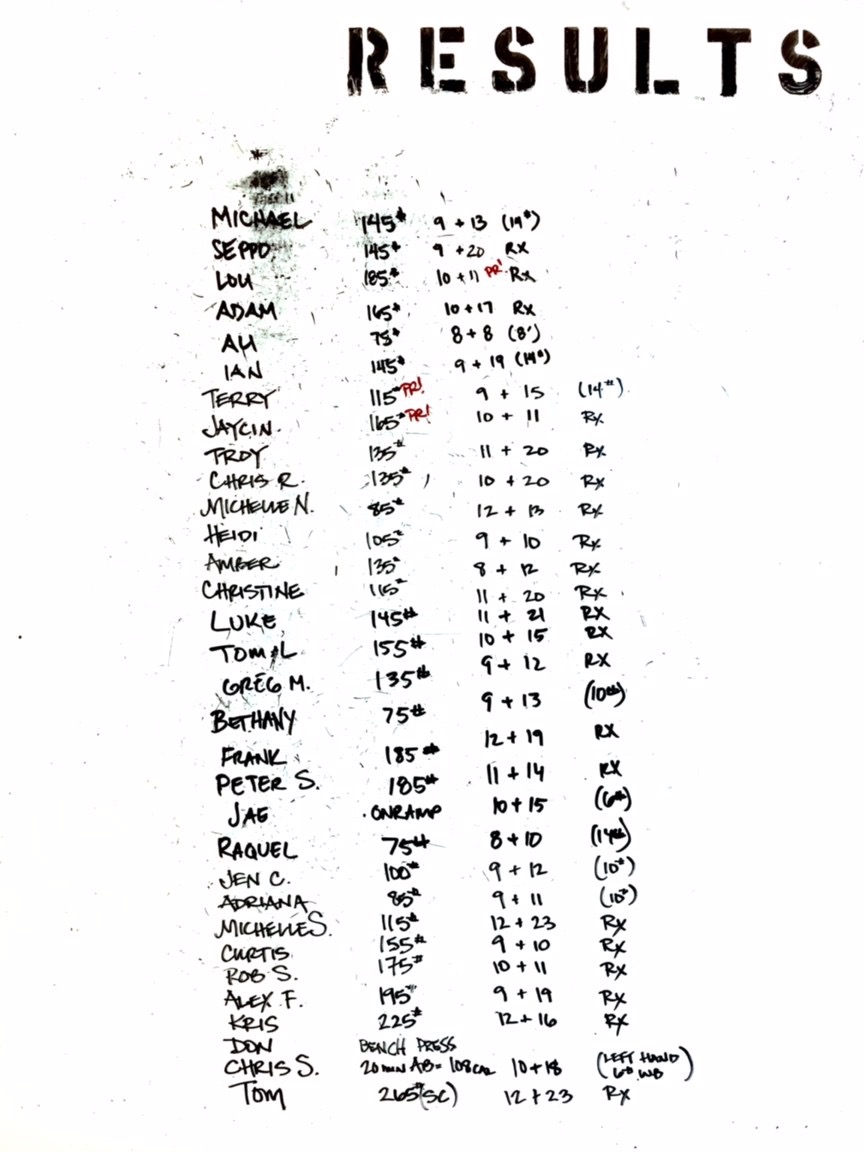 RESULTS
MICHAEL 145# 9 + 13 (14#)
SEPPO 145# 9 + 20 RX
LOU 185# 10 + 11 PR! RX
ADAM 165# 10 + 17 RX
ALI 75# 8 + 8 (8')
IAN 145# 9 + 19 (14#)
TERRY 115# PR! 9 + 15 (14#)
JAYCIN 165# PR! 10 + 11 Rx
TROY 135# 11 + 20 Rx
CHRIS R. 135# 10 + 20 Rx
MICHELLE N. 85# 12 + 13 Rx
HEIDI 105# 9 + 10 Rx
AMBER 135# 8 + 12 Rx
CHRISTINE 115# 11 + 20 Rx
LUKE 145# 11 + 21 RX
TOM L 155# 10 + 15 RX
GREG M. 135# 9 + 12 RX
BETHANY 75# 9 + 13 (10#)
FRANK 185# 12 + 19 RX
PETER S. 185# 11 + 14 RX
JAE ONRAMP 10 + 15 (6#)
RAQUEL 75# 8 + 10 (14#)
JEN C. 100# 9 + 12 (10#)
ADRIANA 85# 9 + 11 (10#)
MICHELLE S. 115# 12 + 23 Rx
CURTIS 155# 9 + 10 Rx
ROB S. 175# 10 + 11 Rx
ALEX F. 195# 9 + 19 Rx
KRIS 225# 12 + 16 Rx
DON BENCH PRESS
CHRIS S. 20 min AB = 108 CAL 10 + 18 (LEFT HAND 6# WB)
TOM 265# (SC) 12 + 23 Rx